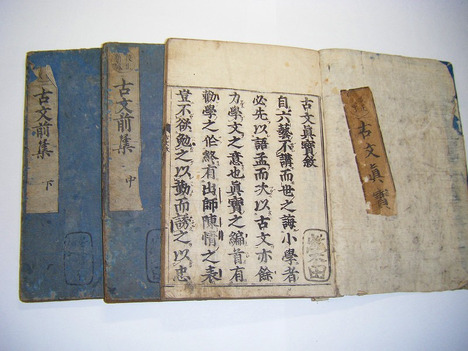 古文眞寶
古文眞寶敘
自六藝不講而世之誨小學者
必先以語孟而次以古文亦餘
力學文之意也眞寶之編首有
勸學之作終有出師陳情之表
豈不欲勉之以勤而誘之以忠
古文前集
中
古文前集
下